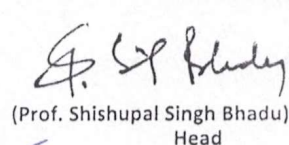 (Prof. Shishupal Singh Bhadu)
Head